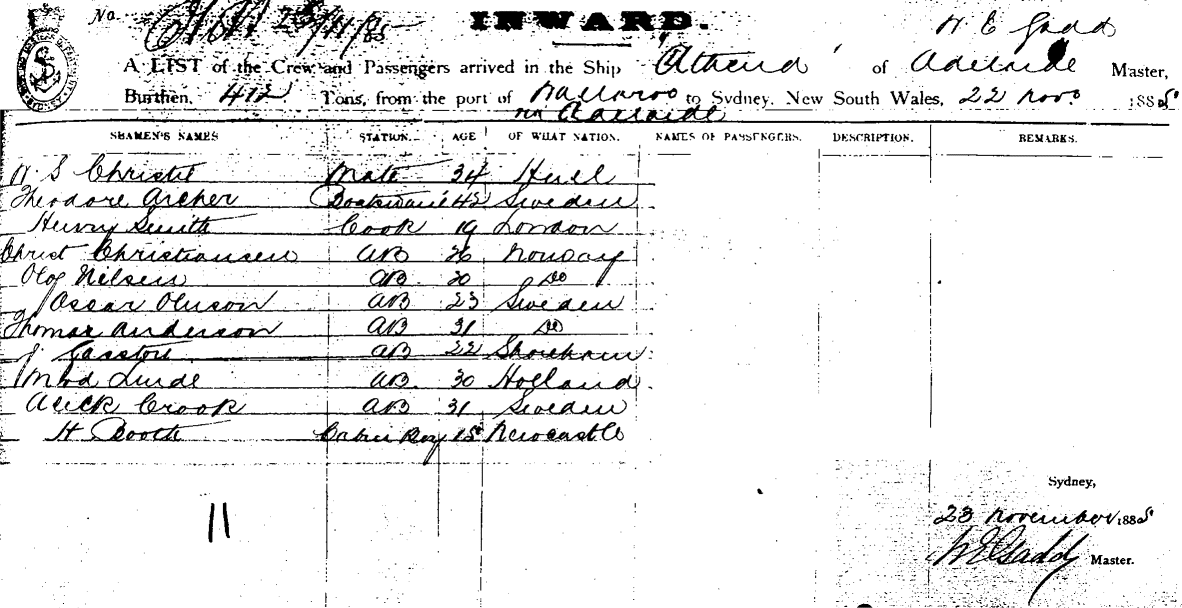 No.
INWARD.
W E Gadd
A LIST of the Crew and Passengers arrived in the Ship "Athena" of Adelaide Master,
Burthen, 412 Tons, from the port of Wallaroo to Sydney, New South Wales, 22 Novr. 1885
via Adelaide
SEAMEN'S NAMES STATION. AGE OF WHAT NATION. NAMES OF PASSENGERS. DESCRIPTION. REMARKS.
W S Christie Mate 34 Hull
Theodore Archer Boatswain 42 Sweden
Henry Smith Cook 19 London
Christ Christiansen AB 26 Norway
Olof Nilsen AB 20 Do
Oscar Oluson AB 23 Sweden
Thomas Anderson AB 31 Do
J. Gaston AB 22 Shoreham
AB 30 Holland
Alick Crook AB 31 Sweden
H Booth Cabin Boy 15 Newcastle
11
Sydney,
23 November 1885
W E Gadd Master.